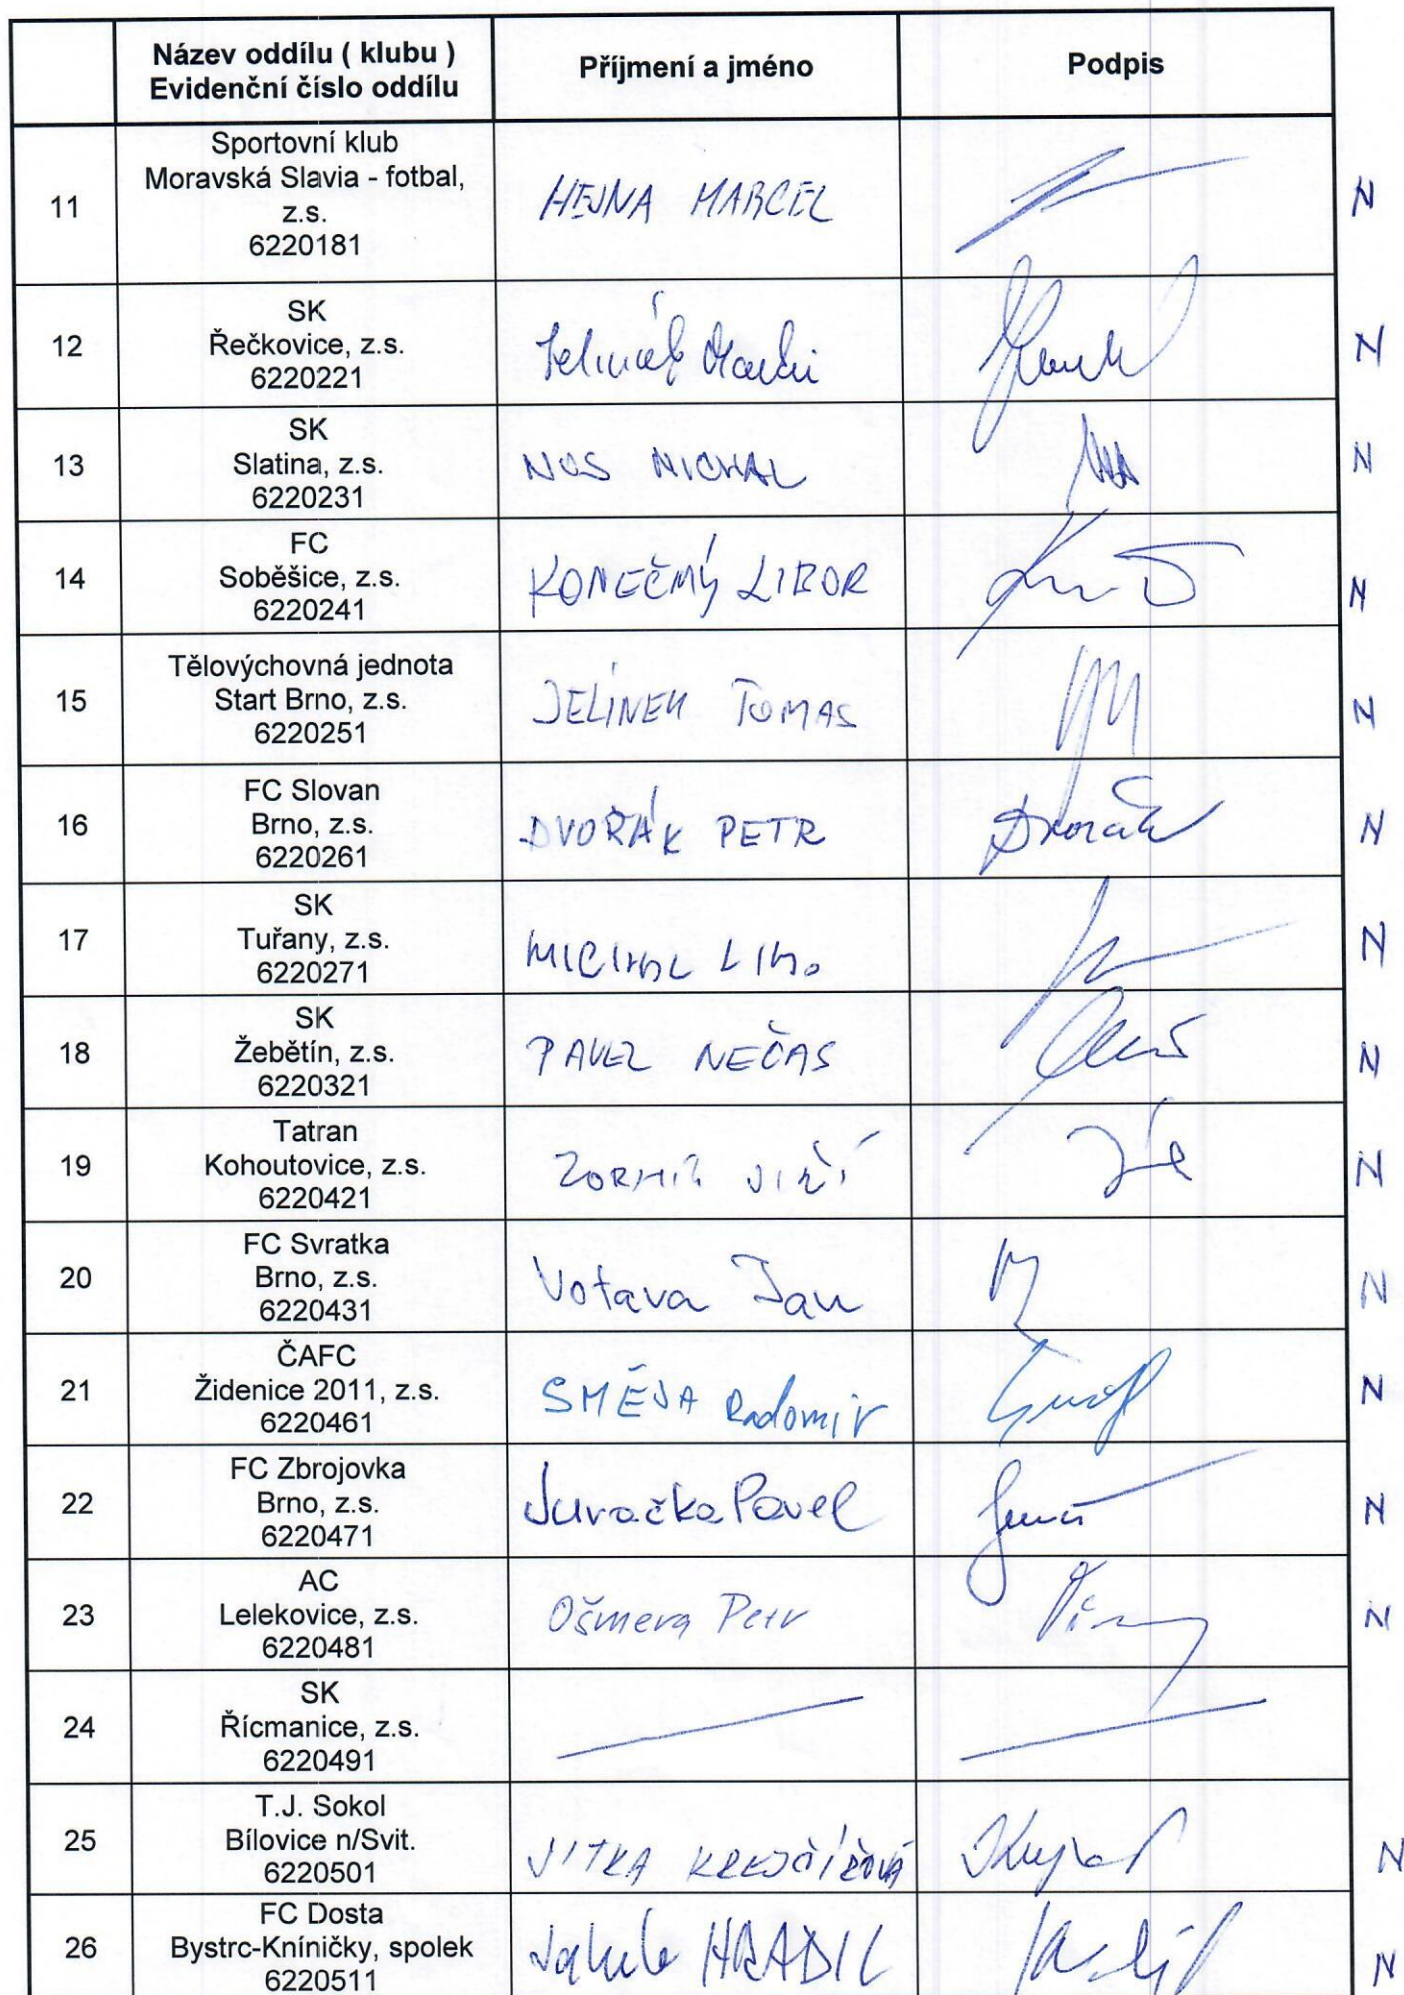 Název oddílu ( klubu )
Evidenční číslo oddílu
Příjmení a jméno
Podpis
11
Sportovní klub
Moravská Slavia - fotbal,
z.s.
6220181
HEJNA MARCEL
N
12
SK
Řečkovice, z.s.
6220221
N
13
SK
Slatina, z.s.
6220231
NOS MICHAL
N
14
FC
Soběšice, z.s.
6220241
KONEČNÝ LIBOR
N
15
Tělovýchovná jednota
Start Brno, z.s.
6220251
JELÍNEK TOMAS
N
16
FC Slovan
Brno, z.s.
6220261
DVOŘÁK PETR
Dvořák
N
17
SK
Tuřany, z.s.
6220271
MICHAL
N
18
SK
Žebětín, z.s.
6220321
PAVEL NEČAS
N
19
Tatran
Kohoutovice, z.s.
6220421
JIŘÍ
N
20
FC Svratka
Brno, z.s.
6220431
Votava Jan
N
21
ČAFC
Židenice 2011, z.s.
6220461
SMĚJA Radomír
N
22
FC Zbrojovka
Brno, z.s.
6220471
Juračka Pavel
N
23
AC
Lelekovice, z.s.
6220481
Ošmera Petr
N
24
SK
Řícmanice, z.s.
6220491
25
T.J. Sokol
Bílovice n/Svit.
6220501
JITKA KREJČÍŘOVÁ
N
26
FC Dosta
Bystrc-Kníničky, spolek
6220511
Jakub HRADIL
N